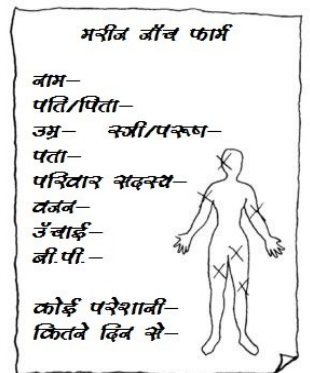 मरीज जॉच फार्म
नाम–
पति/पिता–
उम्र– स्त्री/पुरूष–
पता–
परिवार सदस्य–
वजन–
उॅंचाई–
बी.पी.–
कोई परेशानी–
कितने दिन से–